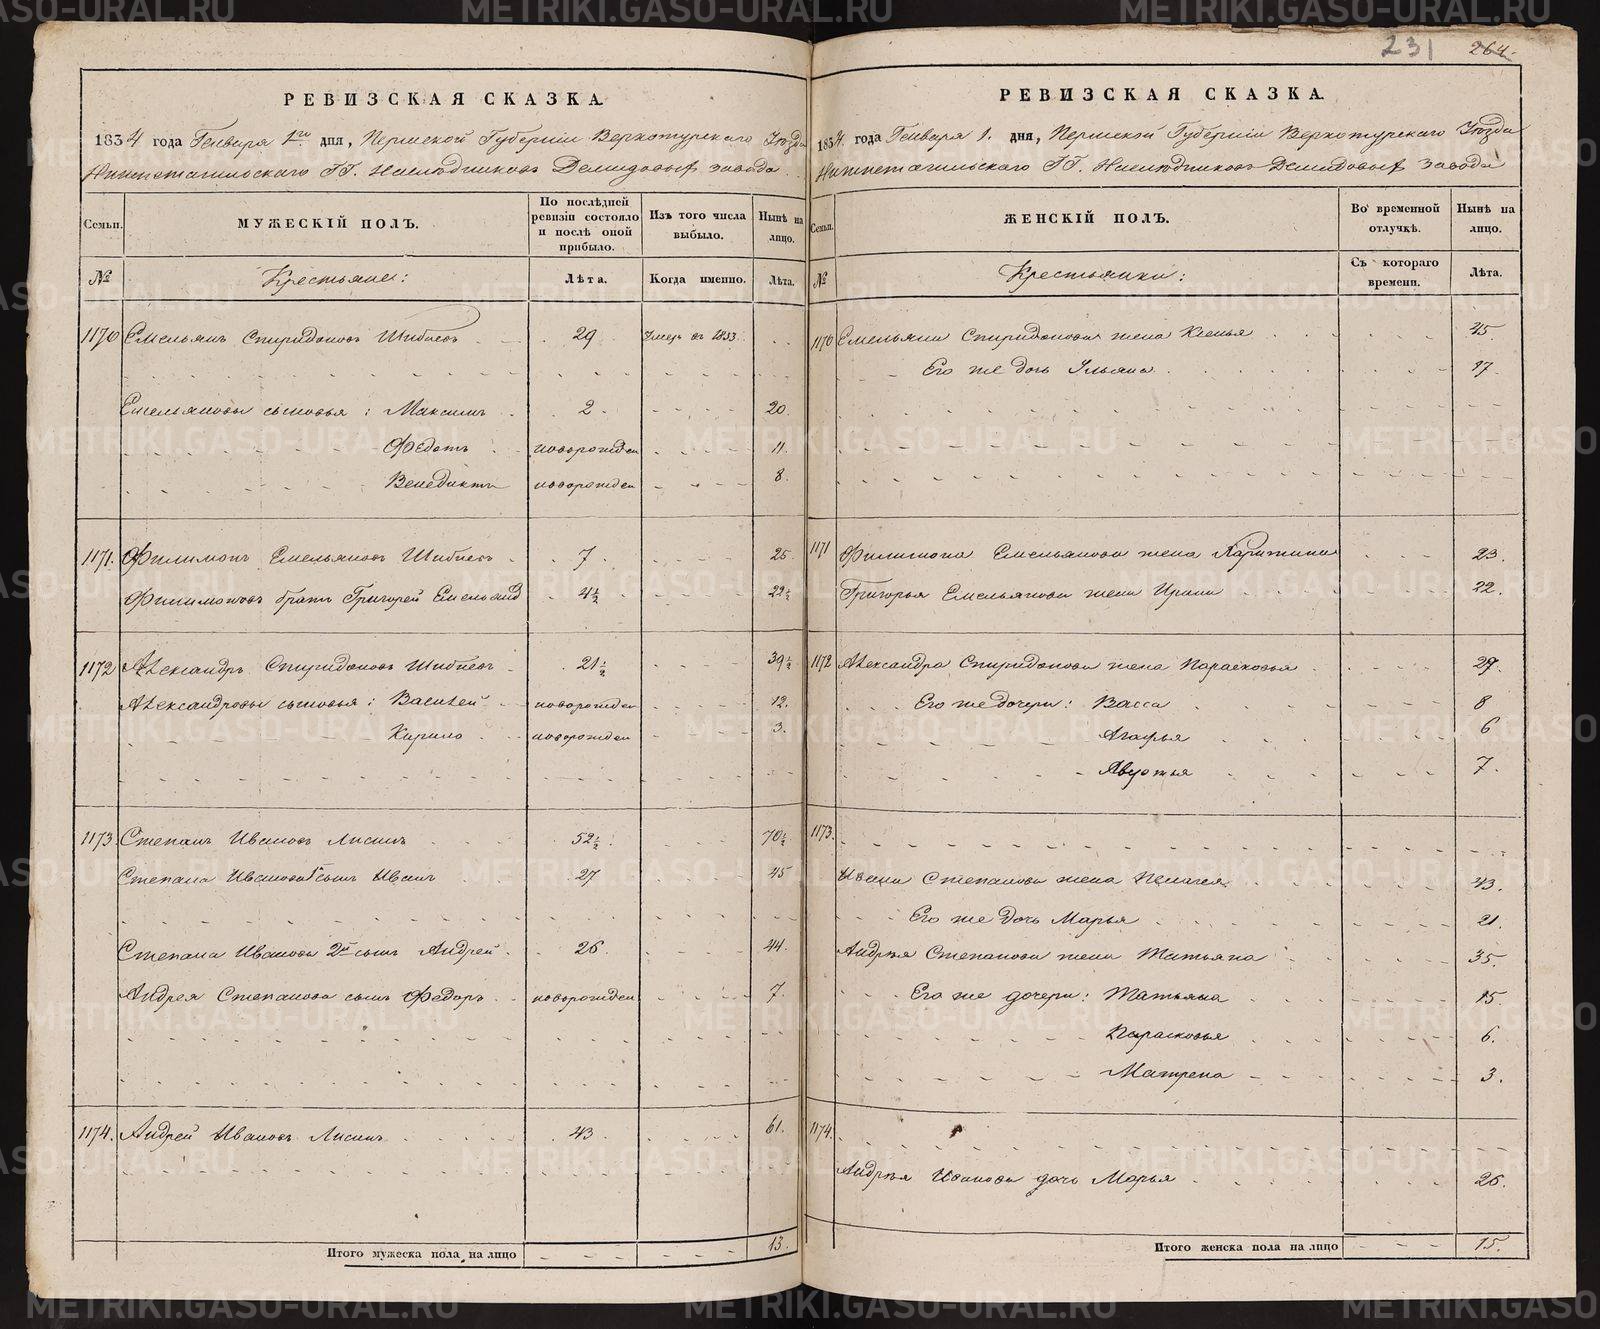 231 264.
РЕВИЗСКАЯ СКАЗКА.
1834 года Генваря 1го дня, Пермской Губернiи Верхотурскаго Уѣзда
Нижнетагильскаго ГГ. Наслѣдниковъ Демидовыхъ завода
Семьи. МУЖЕСКIЙ ПОЛЪ. По послѣдней ревизiи состояло и послѣ оной прибыло. Изъ того числа выбыло. Нынѣ на лицо.
№ Крестьяне: Лѣта. Когда именно. Лѣта.
1170 Емельянъ Спиридоновъ Шибневъ 29 Умеръ въ 1833
Емельяновы сыновья: Максимъ 2 20.
Федотъ новорожден 11.
Венедиктъ новорожден 8.
1171. Филимонъ Емельяновъ Шибневъ 7 25
Филимоновъ братъ Григорей Емельяно 4 1/2 22 1/2
1172 Александръ Спиридоновъ Шибневъ 21 1/2 39 1/2
Александровы сыновья: Василей новорожден 12.
Кирило новорожден 3.
1173. Степанъ Ивановъ Лисинъ 52 1/2 70 1/2
Степана Иванова 1й сынъ Иванъ 27 45
Степана Иванова 2й сынъ Андрей 26 44.
Андрея Степанова сынъ Федоръ новорожден 7.
1174. Андрей Ивановъ Лисинъ 43 61.
Итого мужеска пола на лицо 13.
РЕВИЗСКАЯ СКАЗКА.
1834. года Генваря 1. дня, Пермской Губернiи Верхотурскаго Уѣзда
Нижнетагильскаго ГГ. Наслѣдниковъ Демидовыхъ завода
Семьи. ЖЕНСКIЙ ПОЛЪ. Во временной отлучкѣ. Нынѣ на лицо.
№ Крестьянки: Съ котораго времени. Лѣта.
1170 Емельяна Спиридонова жена Ксенья 45.
Его же дочь Ульяна 17.
1171 Филимона Емельянова жена 23.
Григорья Емельянова жена Ирина 22.
1172 Александра Спиридонова жена Парасковья 29.
Его же дочери: Васса 8
Агафья 6
Авдотья 7.
1173.
Ивана Степанова жена Пелагея 43.
Его же дочь Марья 21.
Андрѣя Степанова жена Татьяна 35.
Его же дочери: Татьяна 15.
Парасковья 6.
Матрена 3.
1174.
Андрѣя Иванова дочь Марья 26.
Итого женска пола на лицо 15.
METRIKI.GASO-URAL.RU